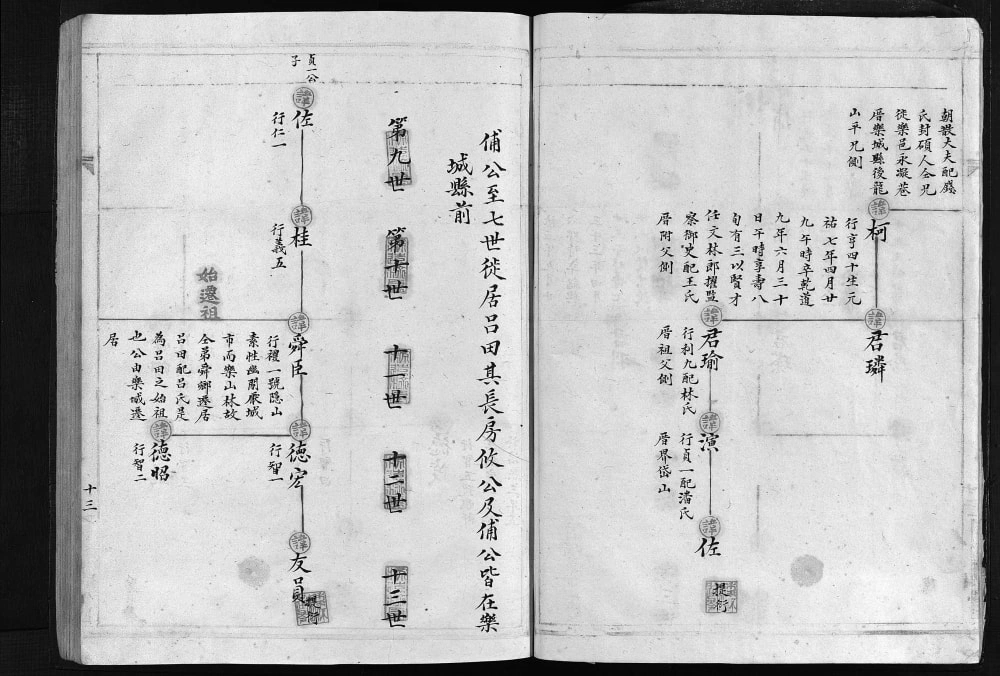 朝散大夫配戲
氏封碩人仝兄
徙樂邑永凝巷
厝樂城縣後龍
山平兄側
諱
柯
行亨四十生元
祐七年四月廿
九午時卒乾道
九年六月三十
日午時享壽八
旬有三以賢才
任文林郎擢監
察御史配王氏
厝附父側
諱
君璘
諱
君瑜
行利九配林氏
厝祖父側
諱
演
行貞一配潘氏
厝界岱山
諱
佐
提行
俌公至七世徙居呂田其長房攸公及俌公皆在樂
城縣前
第九世
第十世
十一世
十二世
十三世
貞一公
子
諱
佐
行仁一
諱
桂
行義五
始遷祖
諱
舜臣
行禮一號隱山
素性幽閒厭城
市而樂山林故
仝弟舜鄉遷居
呂田配呂氏是
為呂田之始祖
也公由樂城遷
居
諱
德宏
行智一
諱
德昭
行智二
諱
友員
提行
十三